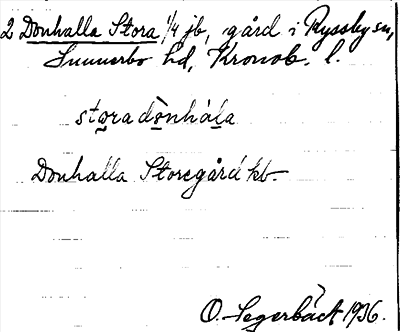 2 Donhalla Stora, 1/4 jb, gård i Ryssby sn,
Sunnerbo hd, Kronob. l.
storadònhála
Donhalla Storegård kb.
O. Segerbäck 1936.